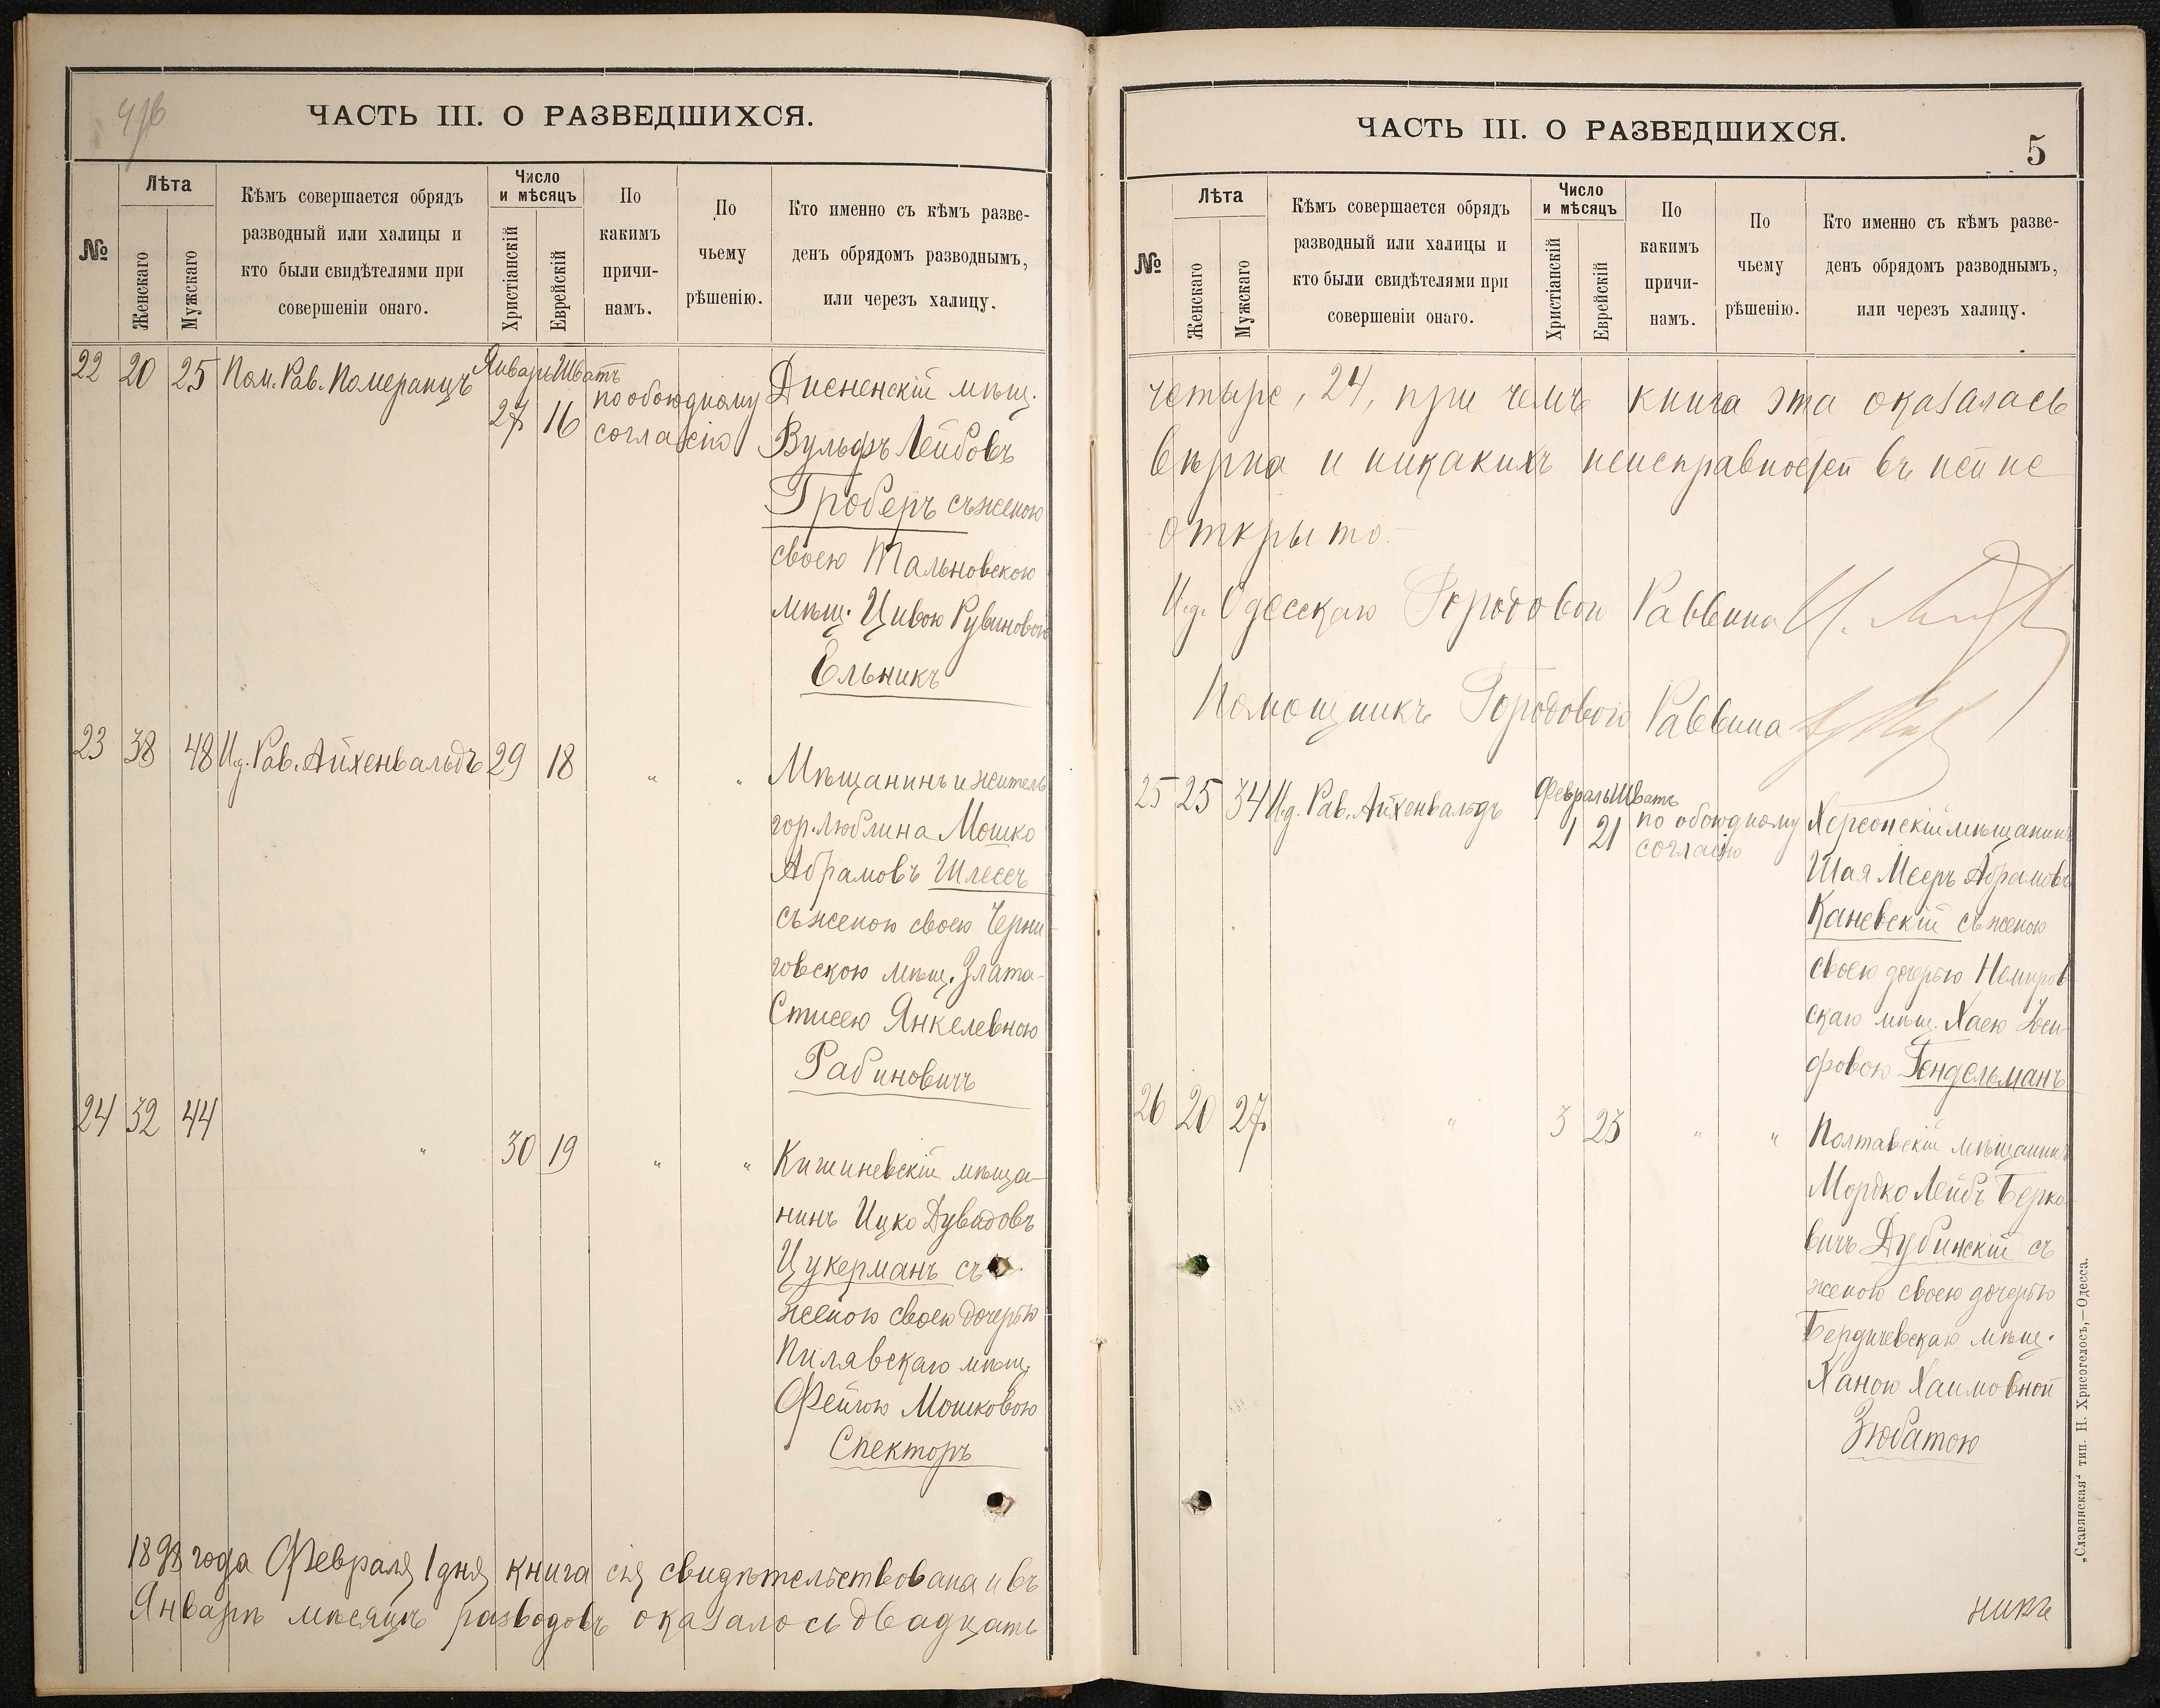 ЧАСТЬ III. О РАЗВЕДШИХСЯ.
№
Лѣта
Женскаго
Мужскаго
Кѣмъ совершается обрядъ
разводный или халицы и
кто были свидѣтелями при
совершеніи онаго.
Число
и мѣсяцъ
Христіанскій
Еврейскій
По
какимъ
причи-
намъ.
По
чьему
рѣшенію.
Кто именно съ кѣмъ разве-
денъ обрядомъ разводнымъ,
или черезъ халицу.
22 20 25 Пом. Рав. Померанцъ Январь Шватъ
27 16
по обоюдному
согласію
Дисненскій мѣщ.
Вульфъ Лейбовъ
Гроберъ съ женою
своею Тальновскою
мѣщ. Цивою Рувиновою
Ельникъ
23 38 48 И.д. Рав. Айхенвальдъ 29 18 " "
Мѣщанинъ и житель
гор. Люблина Мошко
Абрамовъ Шлессъ
съ женою своею Черни-
говскою мѣщ. Злата-
Стисею Янкелевною
Рабиновичъ
24 32 44 " 30 19 " "
Кишиневскій мѣща-
нинъ Ицко Дувидовъ
Цукерманъ съ
женою своею дочерью
Пилявскаго мѣщ.
Фейгою Мошковою
Спекторъ
1898 года Февраля 1 дня книга сія свидѣтельствована и въ
Январѣ мѣсяцѣ разводовъ оказалось двадцать
ЧАСТЬ III. О РАЗВЕДШИХСЯ.
5
№
Лѣта
Женскаго
Мужскаго
Кѣмъ совершается обрядъ
разводный или халицы и
кто были свидѣтелями при
совершеніи онаго.
Число
и мѣсяцъ
Христіанскій
Еврейскій
По
какимъ
причи-
намъ.
По
чьему
рѣшенію.
Кто именно съ кѣмъ разве-
денъ обрядомъ разводнымъ,
или черезъ халицу.
четыре, 24, при чемъ книга эта оказалась
вѣрна и никакихъ неисправностей въ ней не
открыто.
И.д. Одесскаго Городового Раввина
Помощникъ Городового Раввина
25 25 34 И.д. Рав. Айхенвальдъ Февраль Шватъ
1 21
по обоюдному
согласію
Херсонскій мѣщанинъ
Шая Мееръ Абрамовъ
Каневскій съ женою
своею дочерью Немиров
скаго мѣщ. Хаею Іоси
фовою Гендельманъ
26 20 27 " 3 23 " "
Полтавскій мѣщанинъ
Мордко Лейбъ Берко
вичъ Дубинскій съ
женою своею дочерью
Бердичевскаго мѣщ.
Ханою Хаимовной
Зюбатою
никъ
„Славянская“ тип. Н. Хрисогелосъ,—Одесса.